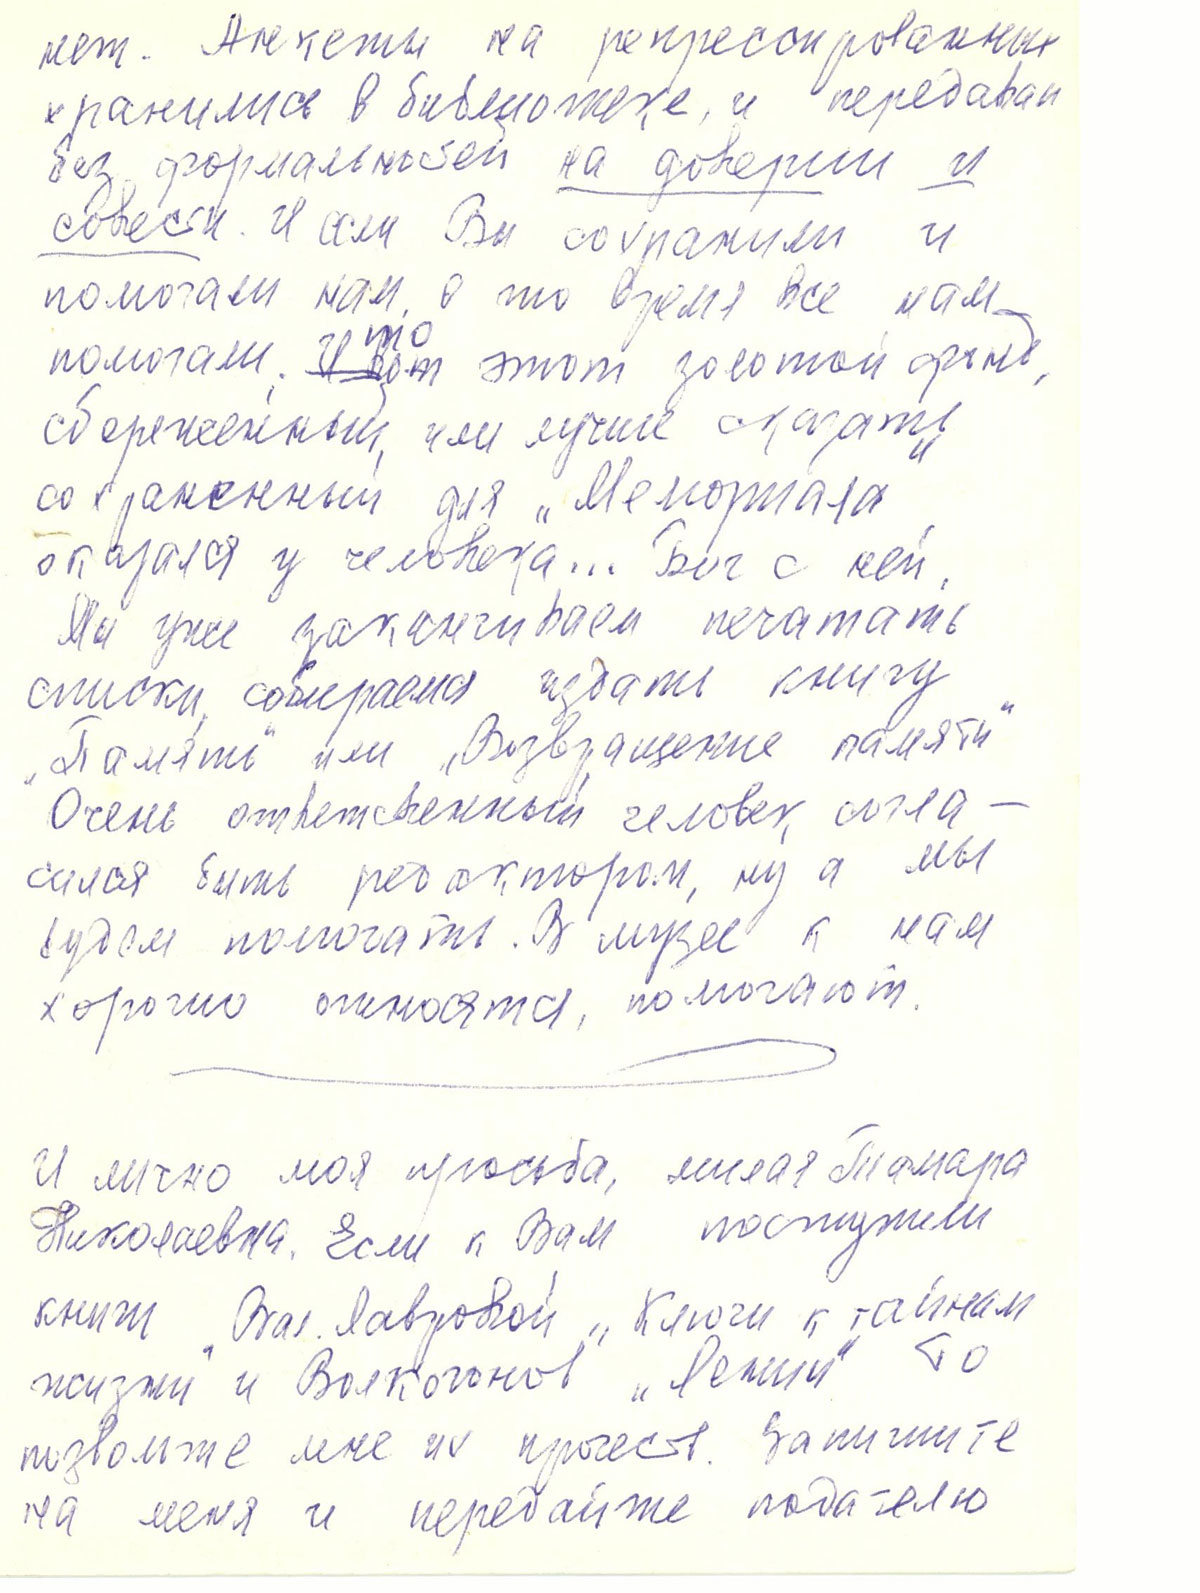 нет. Анкеты на репрессированных
хранились в библиотеке, и передавал
без формальностей на доверии и
совести. И если Вы сохранили и
помогали нам, в то время все нам
помогали. то этот золотой фонд,
сбереженный, или лучше сказать
сохраненный для „Мемориала"
оказался у человека... Бог с ней.
Мы уже заканчиваем печатать
списки, собираемся издать книгу
„Память" или „Возвращение памяти"
Очень ответственный человек согла-
сился быть редактором, ну а мы
будем помогать. В музее к нам
хорошо относятся, помогают.
И лично моя просьба, милая Тамара
Николаевна. Если к Вам поступили
книги Вал. Лавровой „Ключи к тайнам
жизни" и Волкогонов „Ленин" то
позвольте мне их прочесть. Запишите
на меня и передайте подателю